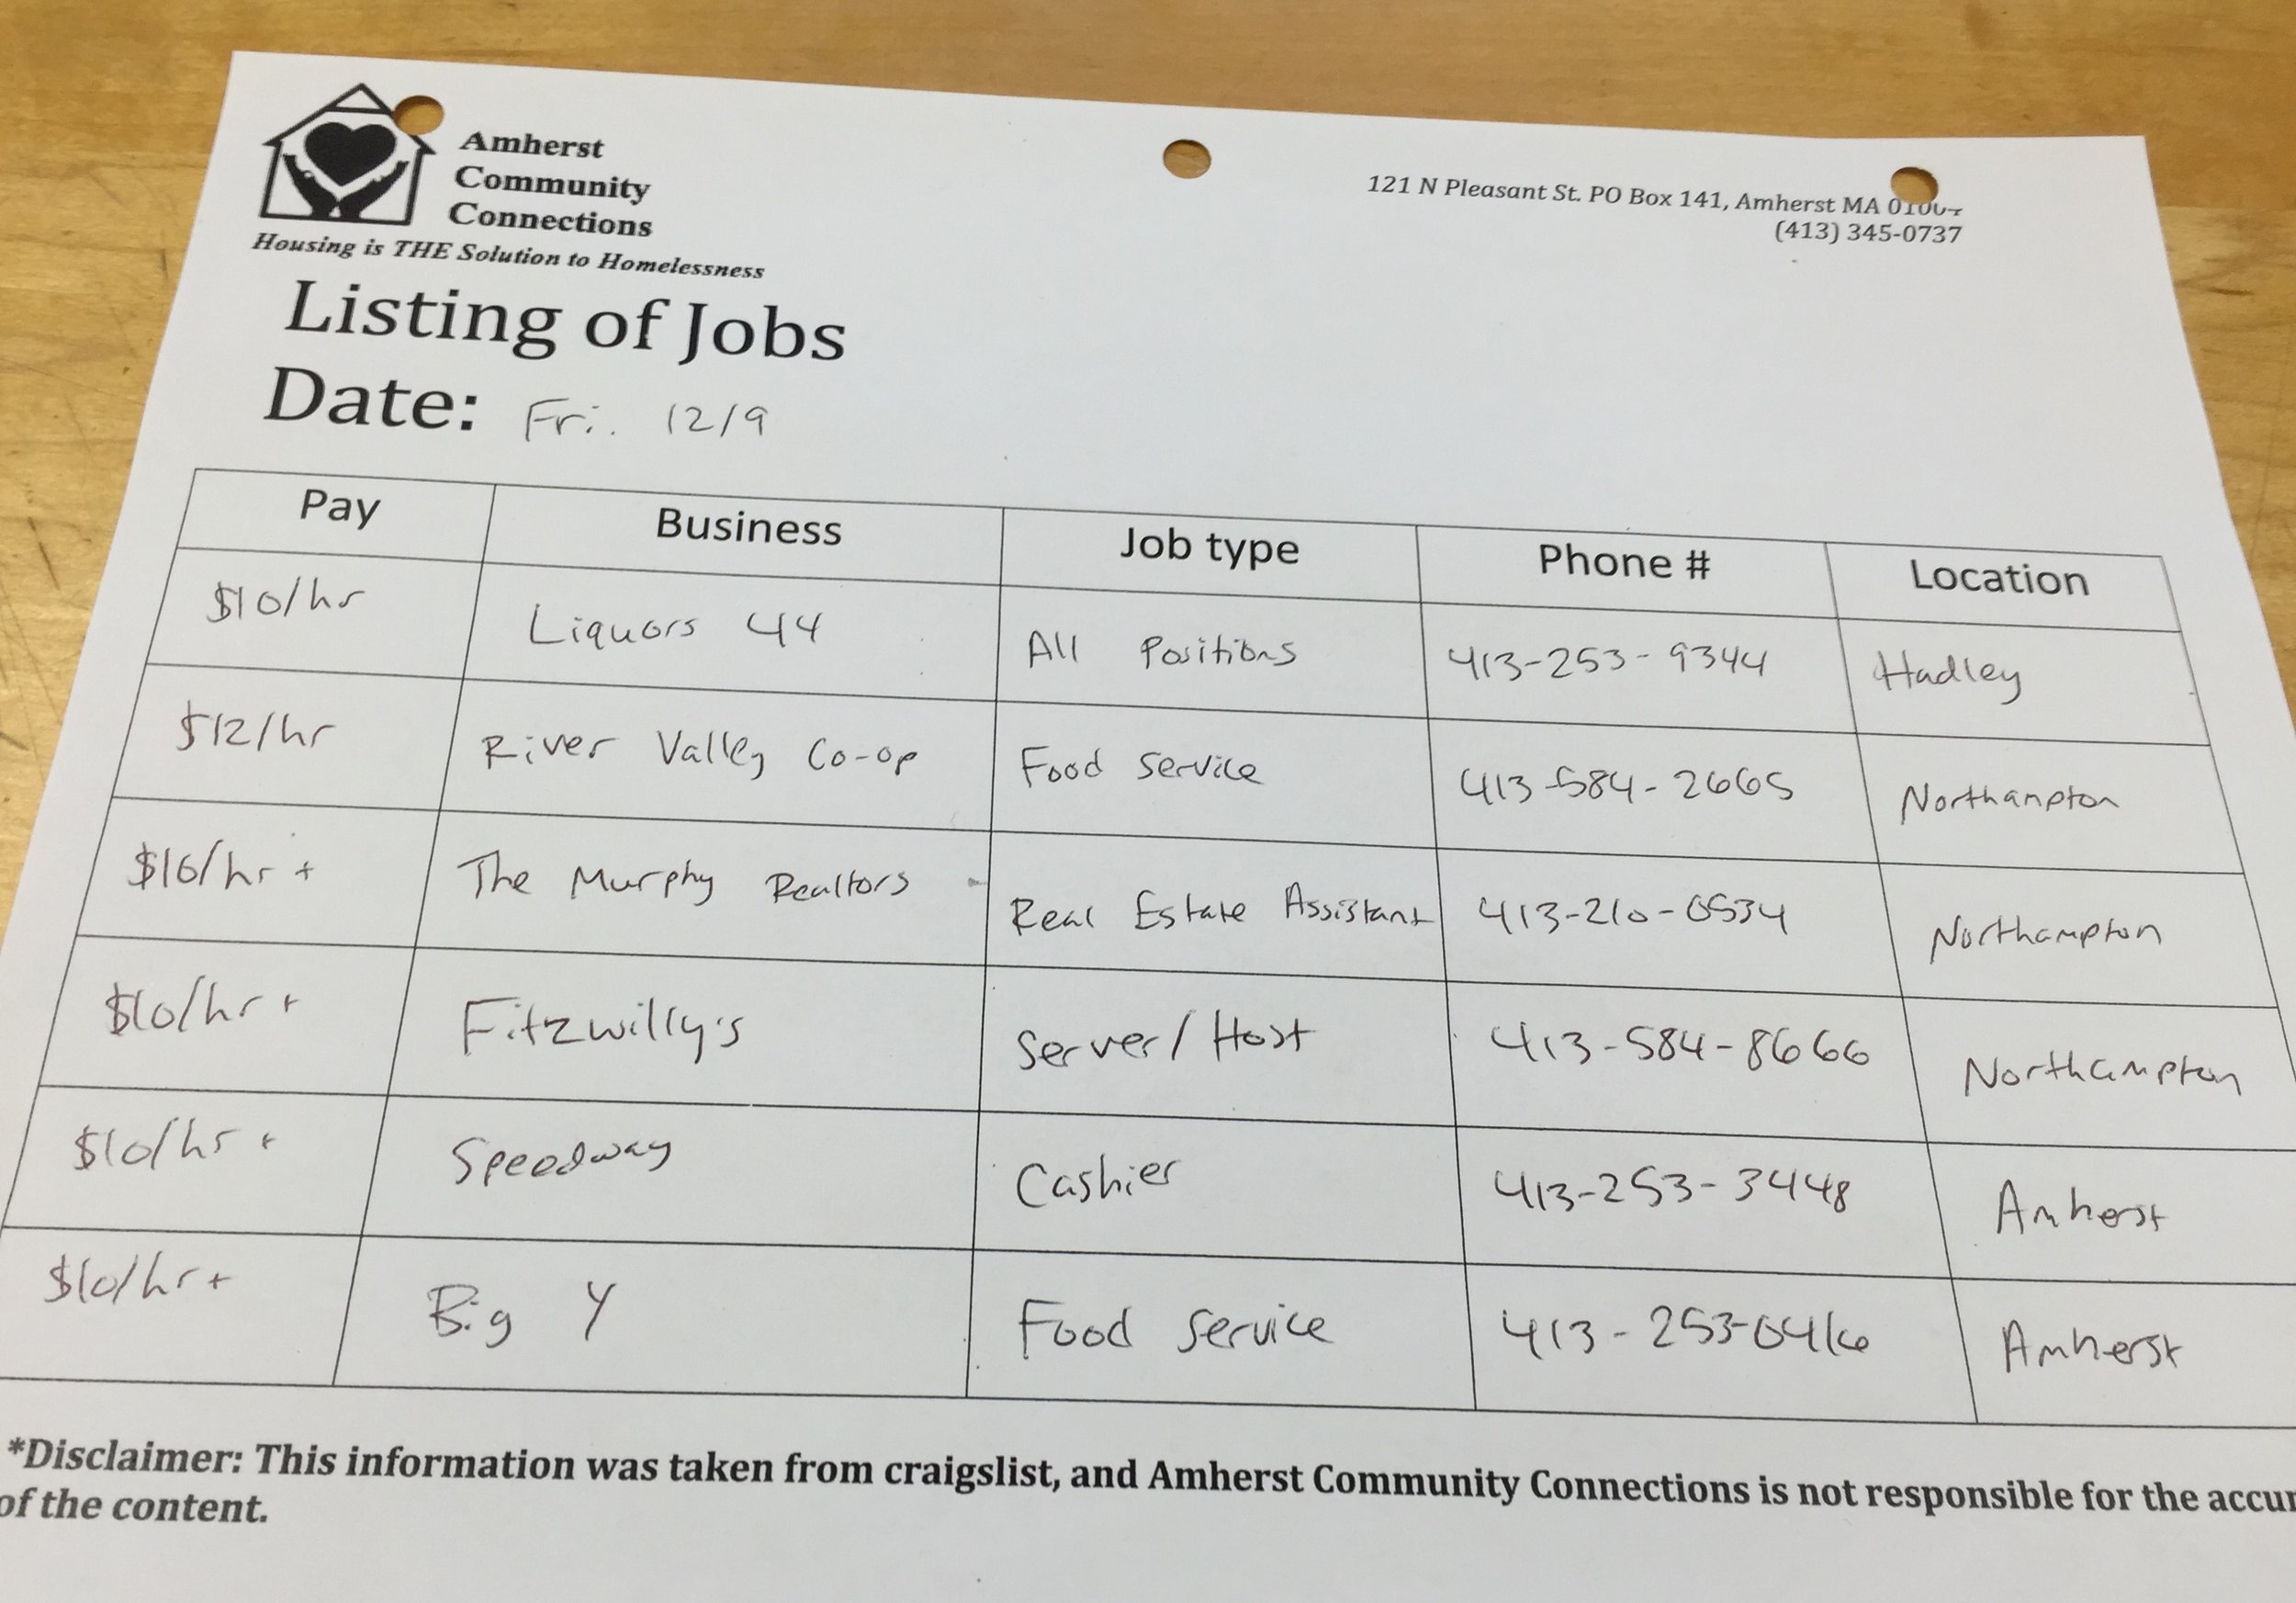 Amherst
Community
Connections
Housing is THE Solution to Homelessness
121 N Pleasant St. PO Box 141, Amherst MA
(413) 345-0737
Listing of Jobs
Date: Fri. 12/9
Pay Business Job type Phone # Location
$10/hr Liquors 44 All Positions 413-253-9344 Hadley
$12/hr River Valley Co-op Food Service 413-584-2665 Northampton
The Murphy Realtors Real Estate Assistant 413-210-0534 Northampton
$10/hr + Fitzwilly's Server/Host 413-584-8666 Northampton
$10/hr + Speedway Cashier 413-253-3448 Amherst
$10/hr+ Big Y Food Service 413-253-0416 Amherst
*Disclaimer: This information was taken from craigslist, and Amherst Community Connections is not responsible for the accur
of the content.